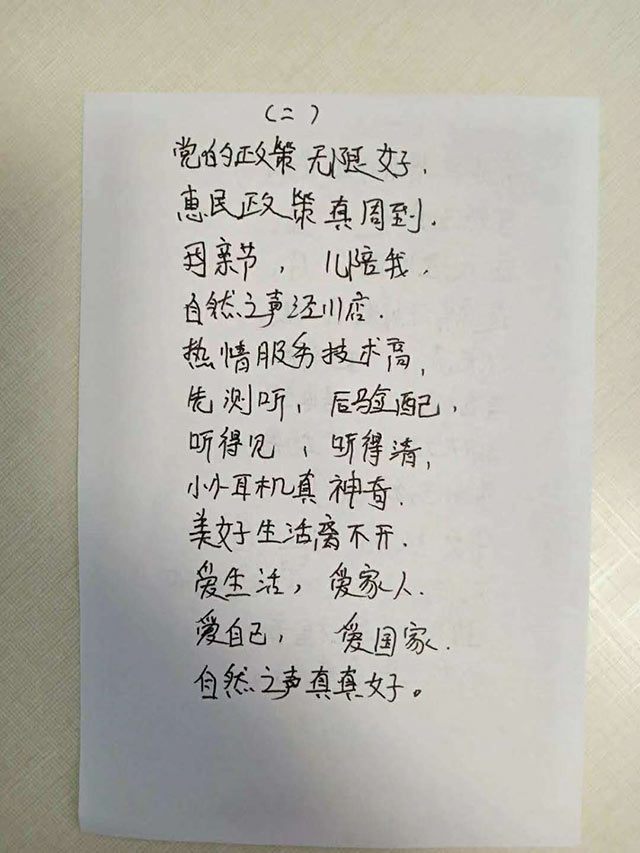 （二）
党的政策无限好，
惠民政策真周到．
母亲节，儿陪我，
自然之声泾川店．
热情服务技术高，
先测听，后验配，
听得见，听得清，
小小耳机真神奇．
美好生活离不开．
爱生活，爱家人．
爱自己，爱国家．
自然之声真真好。